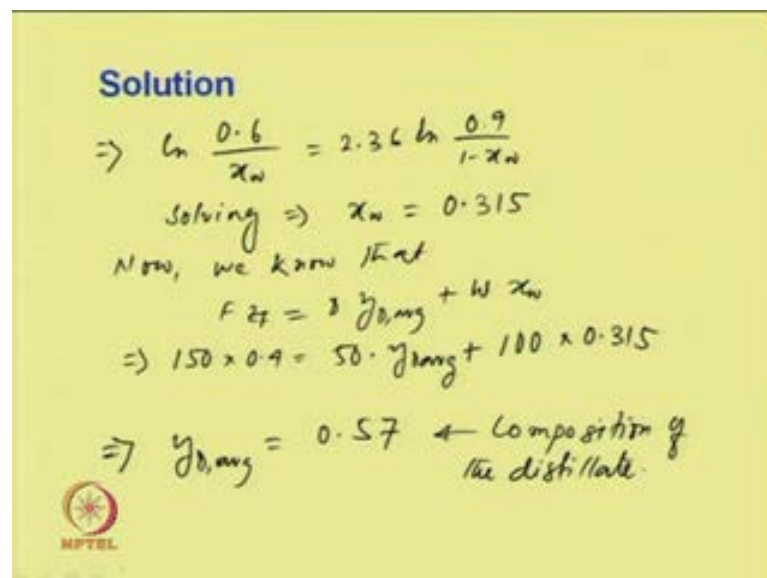 Solution
⇒ ln 0.6/x_w = 2.36 ln 0.9/1-x_w
Solving ⇒ x_w = 0.315
Now, we know that
F z_F = D y_D,avg + W x_w
⇒ 150 × 0.4 = 50. y_Davg + 100 × 0.315
⇒ y_D,avg = 0.57 ← Composition of
the distillate.
NPTEL